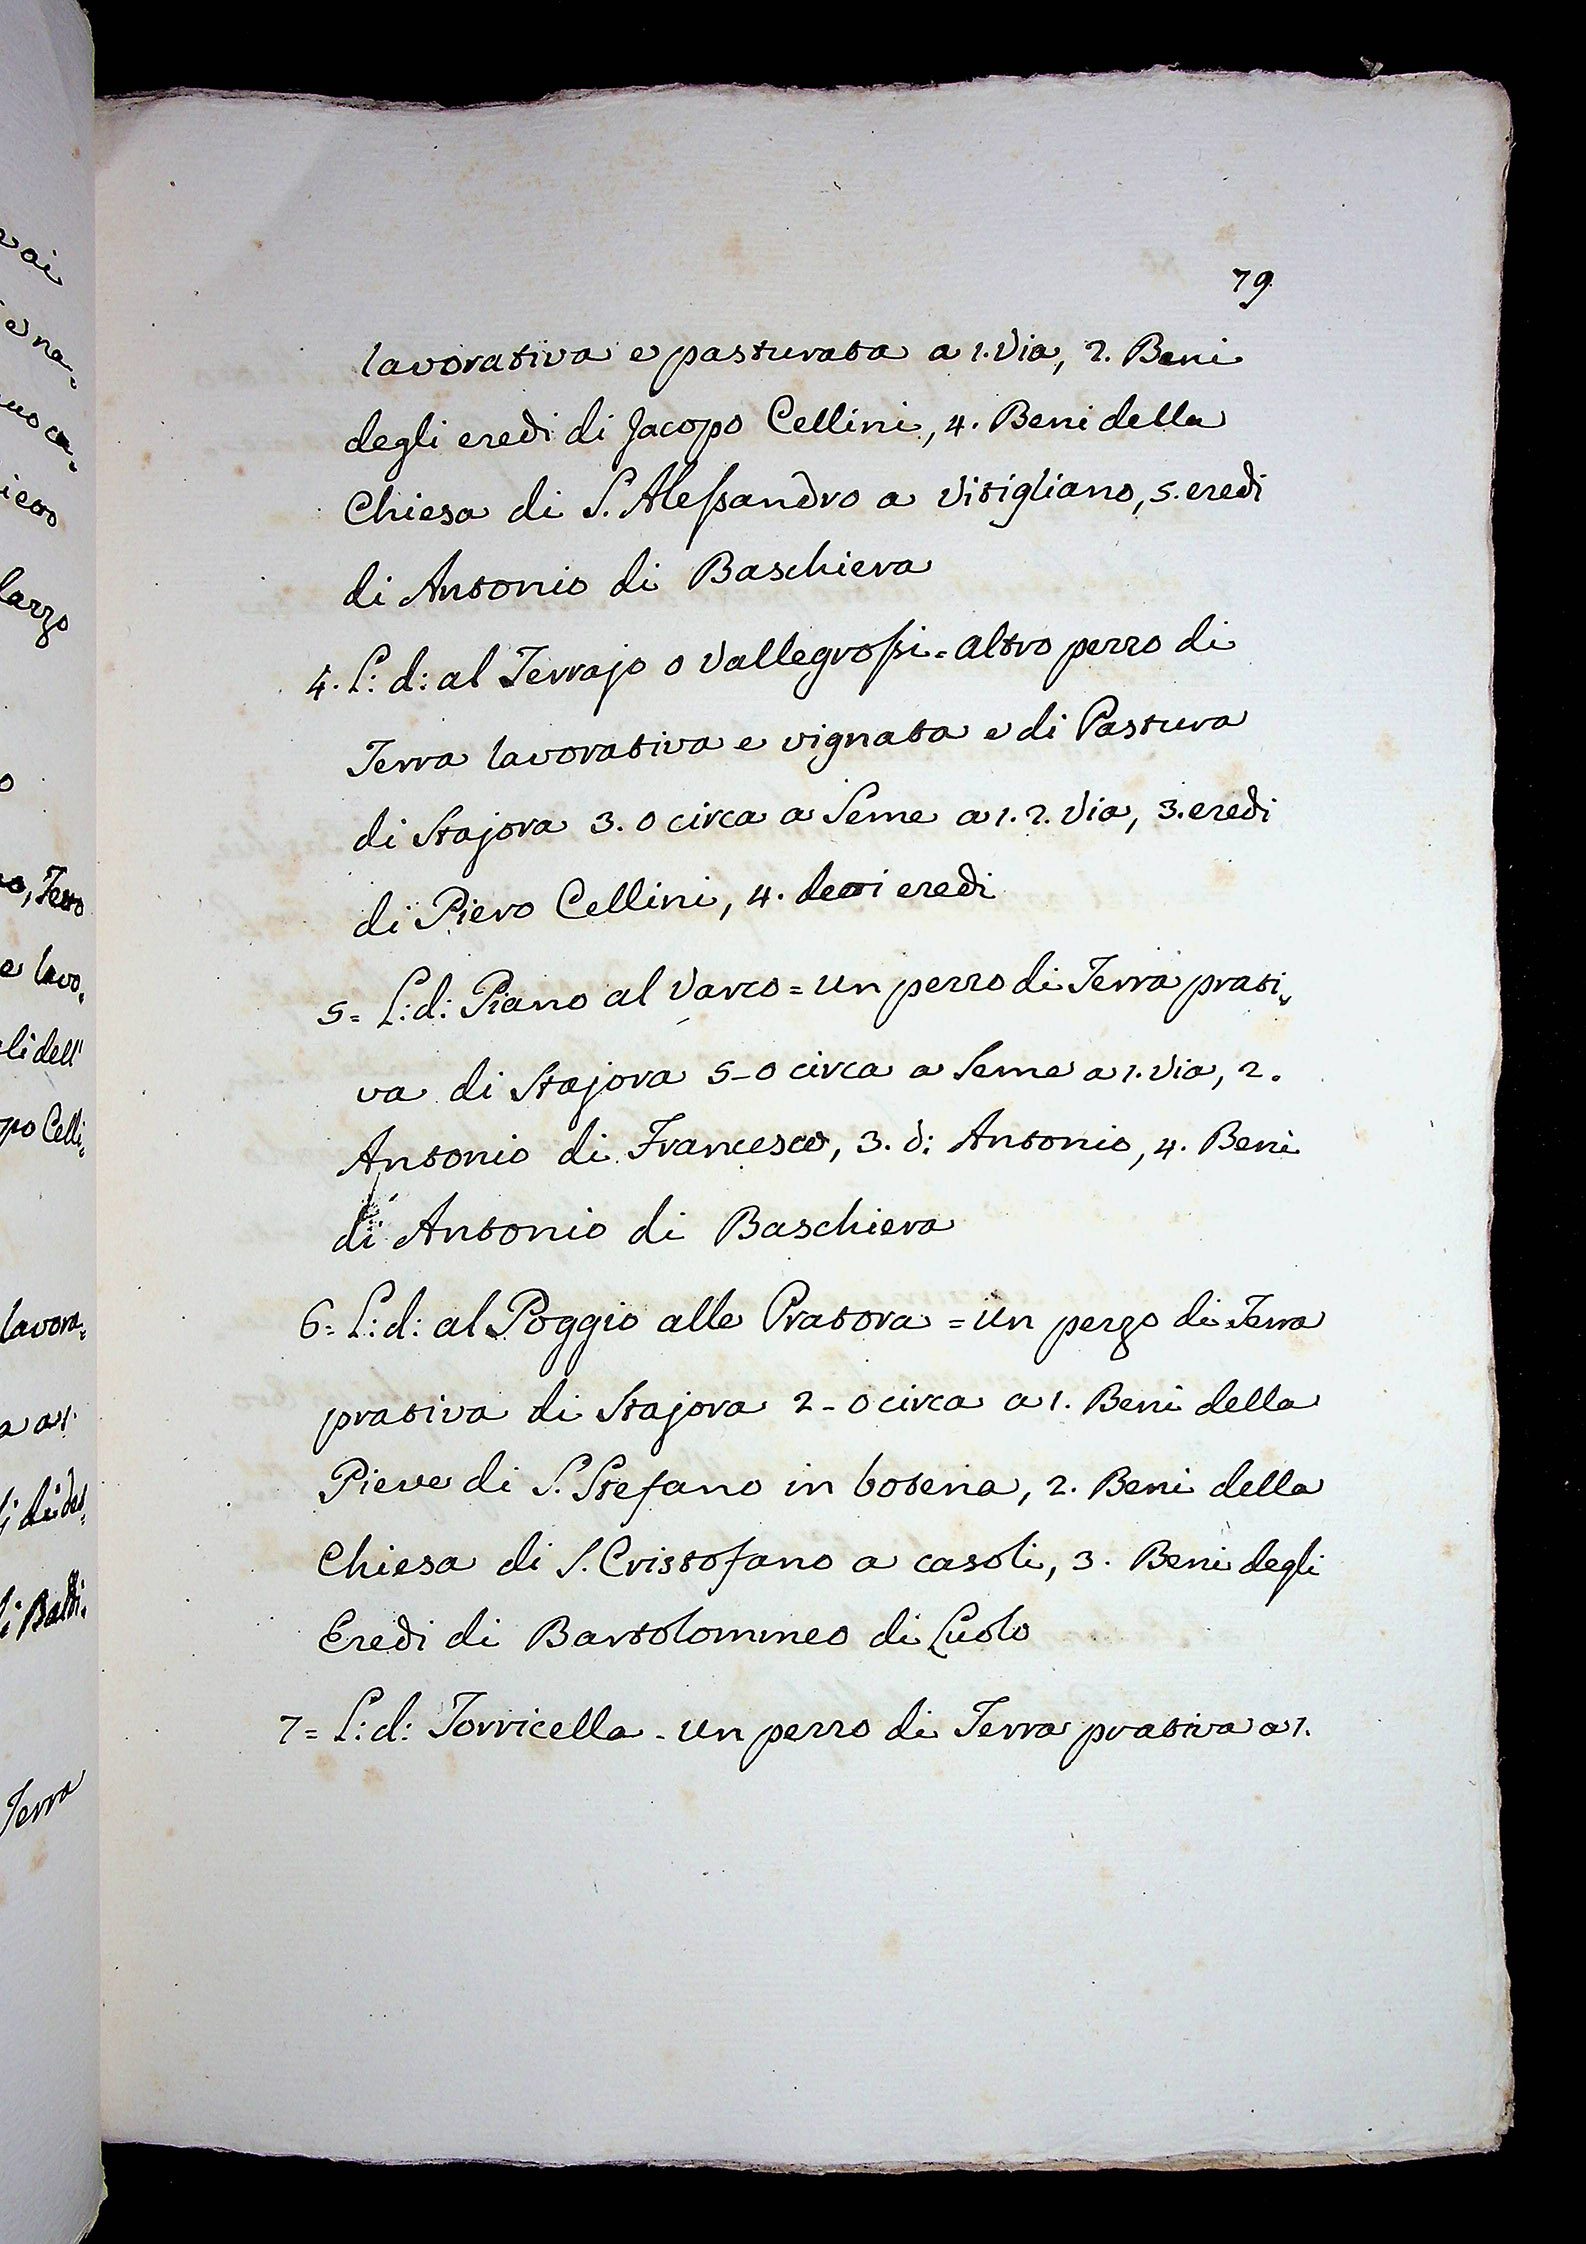 79
lavorativa e pasturata a 1. Via, 2. Beni
degli eredi di Jacopo Cellini, 4. Beni della
Chiesa di S. Alessandro a Vitigliano, 5. eredi
di Antonio di Baschiera
4. L: d: al Terrajo o Vallegrossi = altro pezzo di
Terra lavorativa e vignata e di Pastura
di Stajora 3. 0 circa a Seme a 1. 2. Via, 3. eredi
di Piero Cellini, 4. detti eredi
5 = L: d: Piano al Varco = un pezzo di Terra prati=
va di Stajora 5 - 0 circa a Seme a 1. Via, 2.
Antonio di Francesco, 3. d: Antonio, 4. Beni
di Antonio di Baschiera
6 = L: d: al Poggio alle Pratora = un pezzo di Terra
prativa di Stajora 2 - 0 circa a 1. Beni della
Pieve di S. Stefano in botena, 2. Beni della
Chiesa di S. Cristofano a casoli, 3. Beni degli
Eredi di Bartolommeo di Luolo
7 = L: d: Torricella - un pezzo di Terra prativa a 1.